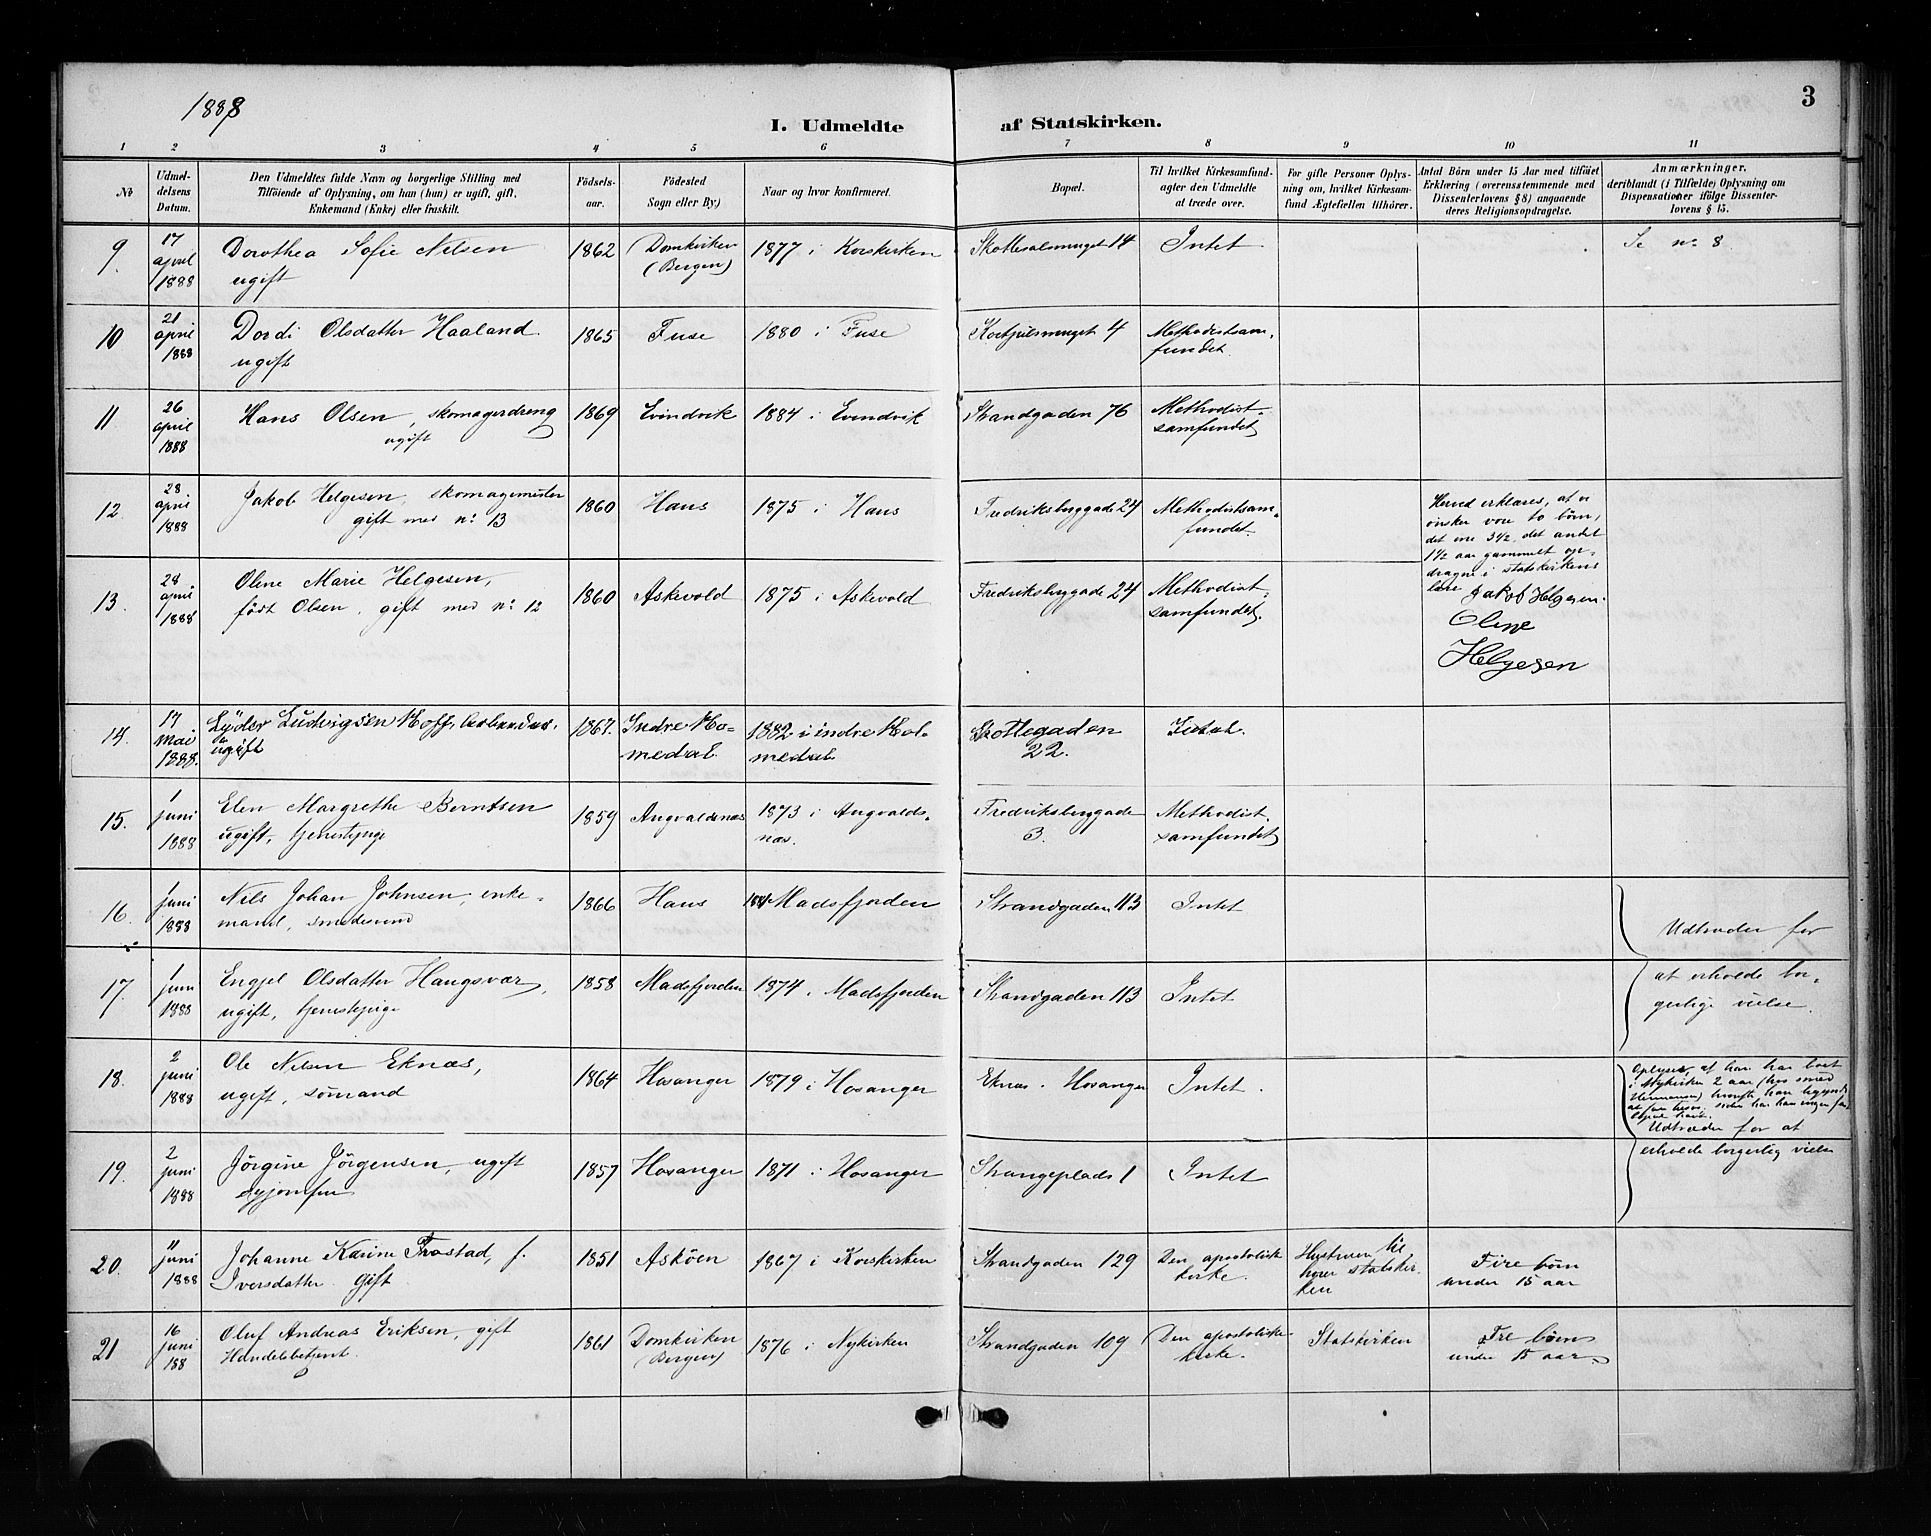 1888
3
I. Udmeldte af Statskirken.
1 2 3 4 5 6 7 8 9 10 11
№
Udmel-
delsens
Datum.
Den Udmeldtes fulde Navn og borgerlige Stilling med
Tilföiende af Oplysning, om han (hun) er ugift, gift,
Enkemand (Enke) eller fraskilt.
Födsels-
aar.
Födested
Sogn eller By.)
Naar og hvor konfirmeret.
Bopæl.
Til hvilket Kirkesamfund-
agter den Udmeldte
at træde over.
For gifte Personer Oplys-
ning om, hvilket Kirkesam-
fund Ægtefællen tilhörer.
Antal Börn under 15 Aar med tilföiet
Erklæring (overensstemmende med
Dissenterlovens §8) angaaende
deres Religionsopdragelse.
Anmærkninger,
deriblandt (i Tilfælde) Oplysning om
Dispensationer ifölge Dissenter-
lovens § 15.
9.
17
april
1888
Dorothea Sofie Nelsen
ugift
1862
Domkirken
(Bergen)
1877 i Korskirken
Skottesalsmuget 14
Intet
Se nº 8
10
21
april
1888
Dordi Olsdatter Haaland.
ugift
1865
Fuse
1880 i Fuse
4
Methodistsam-
fundet.
11.
26
april
1888
Hans Olsen, skomagerdreng
ugift
1869
Evindvik
1884 i Evindvik
Strandgaden 76
Methodist-
samfundet
12.
28
april
1888
Jakob Helgesen, skomagermester
gift med nº 13
1860
Haus
1875 i Haus
Fredriksberggade 24
Methodistsam-
fundet.
Herved erklæres, at vi
önsker vore to börn,
det ene 3½, det andet
1½ aar gammelt op-
dragne i statskirkens
lære Jakob Helgesen.
Oline
Helgesen
13.
28
april
1888
Olene Marie Helgesen,
født Olsen, gift med nº 12
1860
Askevold
1875 i Askevold
Fredriksberggade 24
Methodist-
samfundet.
14.
17
Mai
1888.
Lyder Ludvigsen Hoff,
ugift
1867.
Indre Ho-
medal
1882 i indre Hol-
medal
Skottegaden
22.
Intet.
15.
1
juni
1888
Elen Margrethe Berntsen
ugift, tjenestepige
1859
Augvaldsnæs
1873 i Augvalds-
næs.
Fredriksberggade
3.
Methodist-
samfundet
16.
1
juni
1888
Nils Johan Johnsen, enke-
mand, smedesvend
1866
Haus
Madsfjorden
Strandgaden 113
Intet
Udtræder for
17.
1
juni
1888
Engjel Olsdatter Haugsvær,
ugift, tjenestepige
1858
Madsfjorden
1874 i Madsfjorden
Strandgaden 113
Intet
at erholde bor-
gerlige vielse.
18.
2
juni
1888
Ole Nilsen Eknæs,
ugift, sömand
1864
Hosanger
1879 i Hosanger
Eknæs i Hosanger
Intet.
Oplyses at han har boet
i Nykirken 2 aar (hos smed
Hermansen)
Udtræder for at
19.
2
juni
1888
Jörgine Jörgensen, ugift
syjomfru
1857
Hosanger
1871 i Hosanger
Strangeplads 1
Intet
erholde borgerlig vielse
20.
11
juni
1888
Johanne Karine Frostad, f.
Iversdatter gift
1851
Asköen
1867 i Korskirken
Strandgaden 129
Den apostoliske
kirke.
til-
hörer statskir-
ken
Fire börn
under 15 aar
21
16
juni
188
Oluf Andreas Eriksen, gift
Handelsbetjent
1861
Domkirken
(Bergen)
1876 i Nykirken
Strandgaden 109
Den apostoliske
kirke.
Statskirken
Tre börn
under 15 aar.